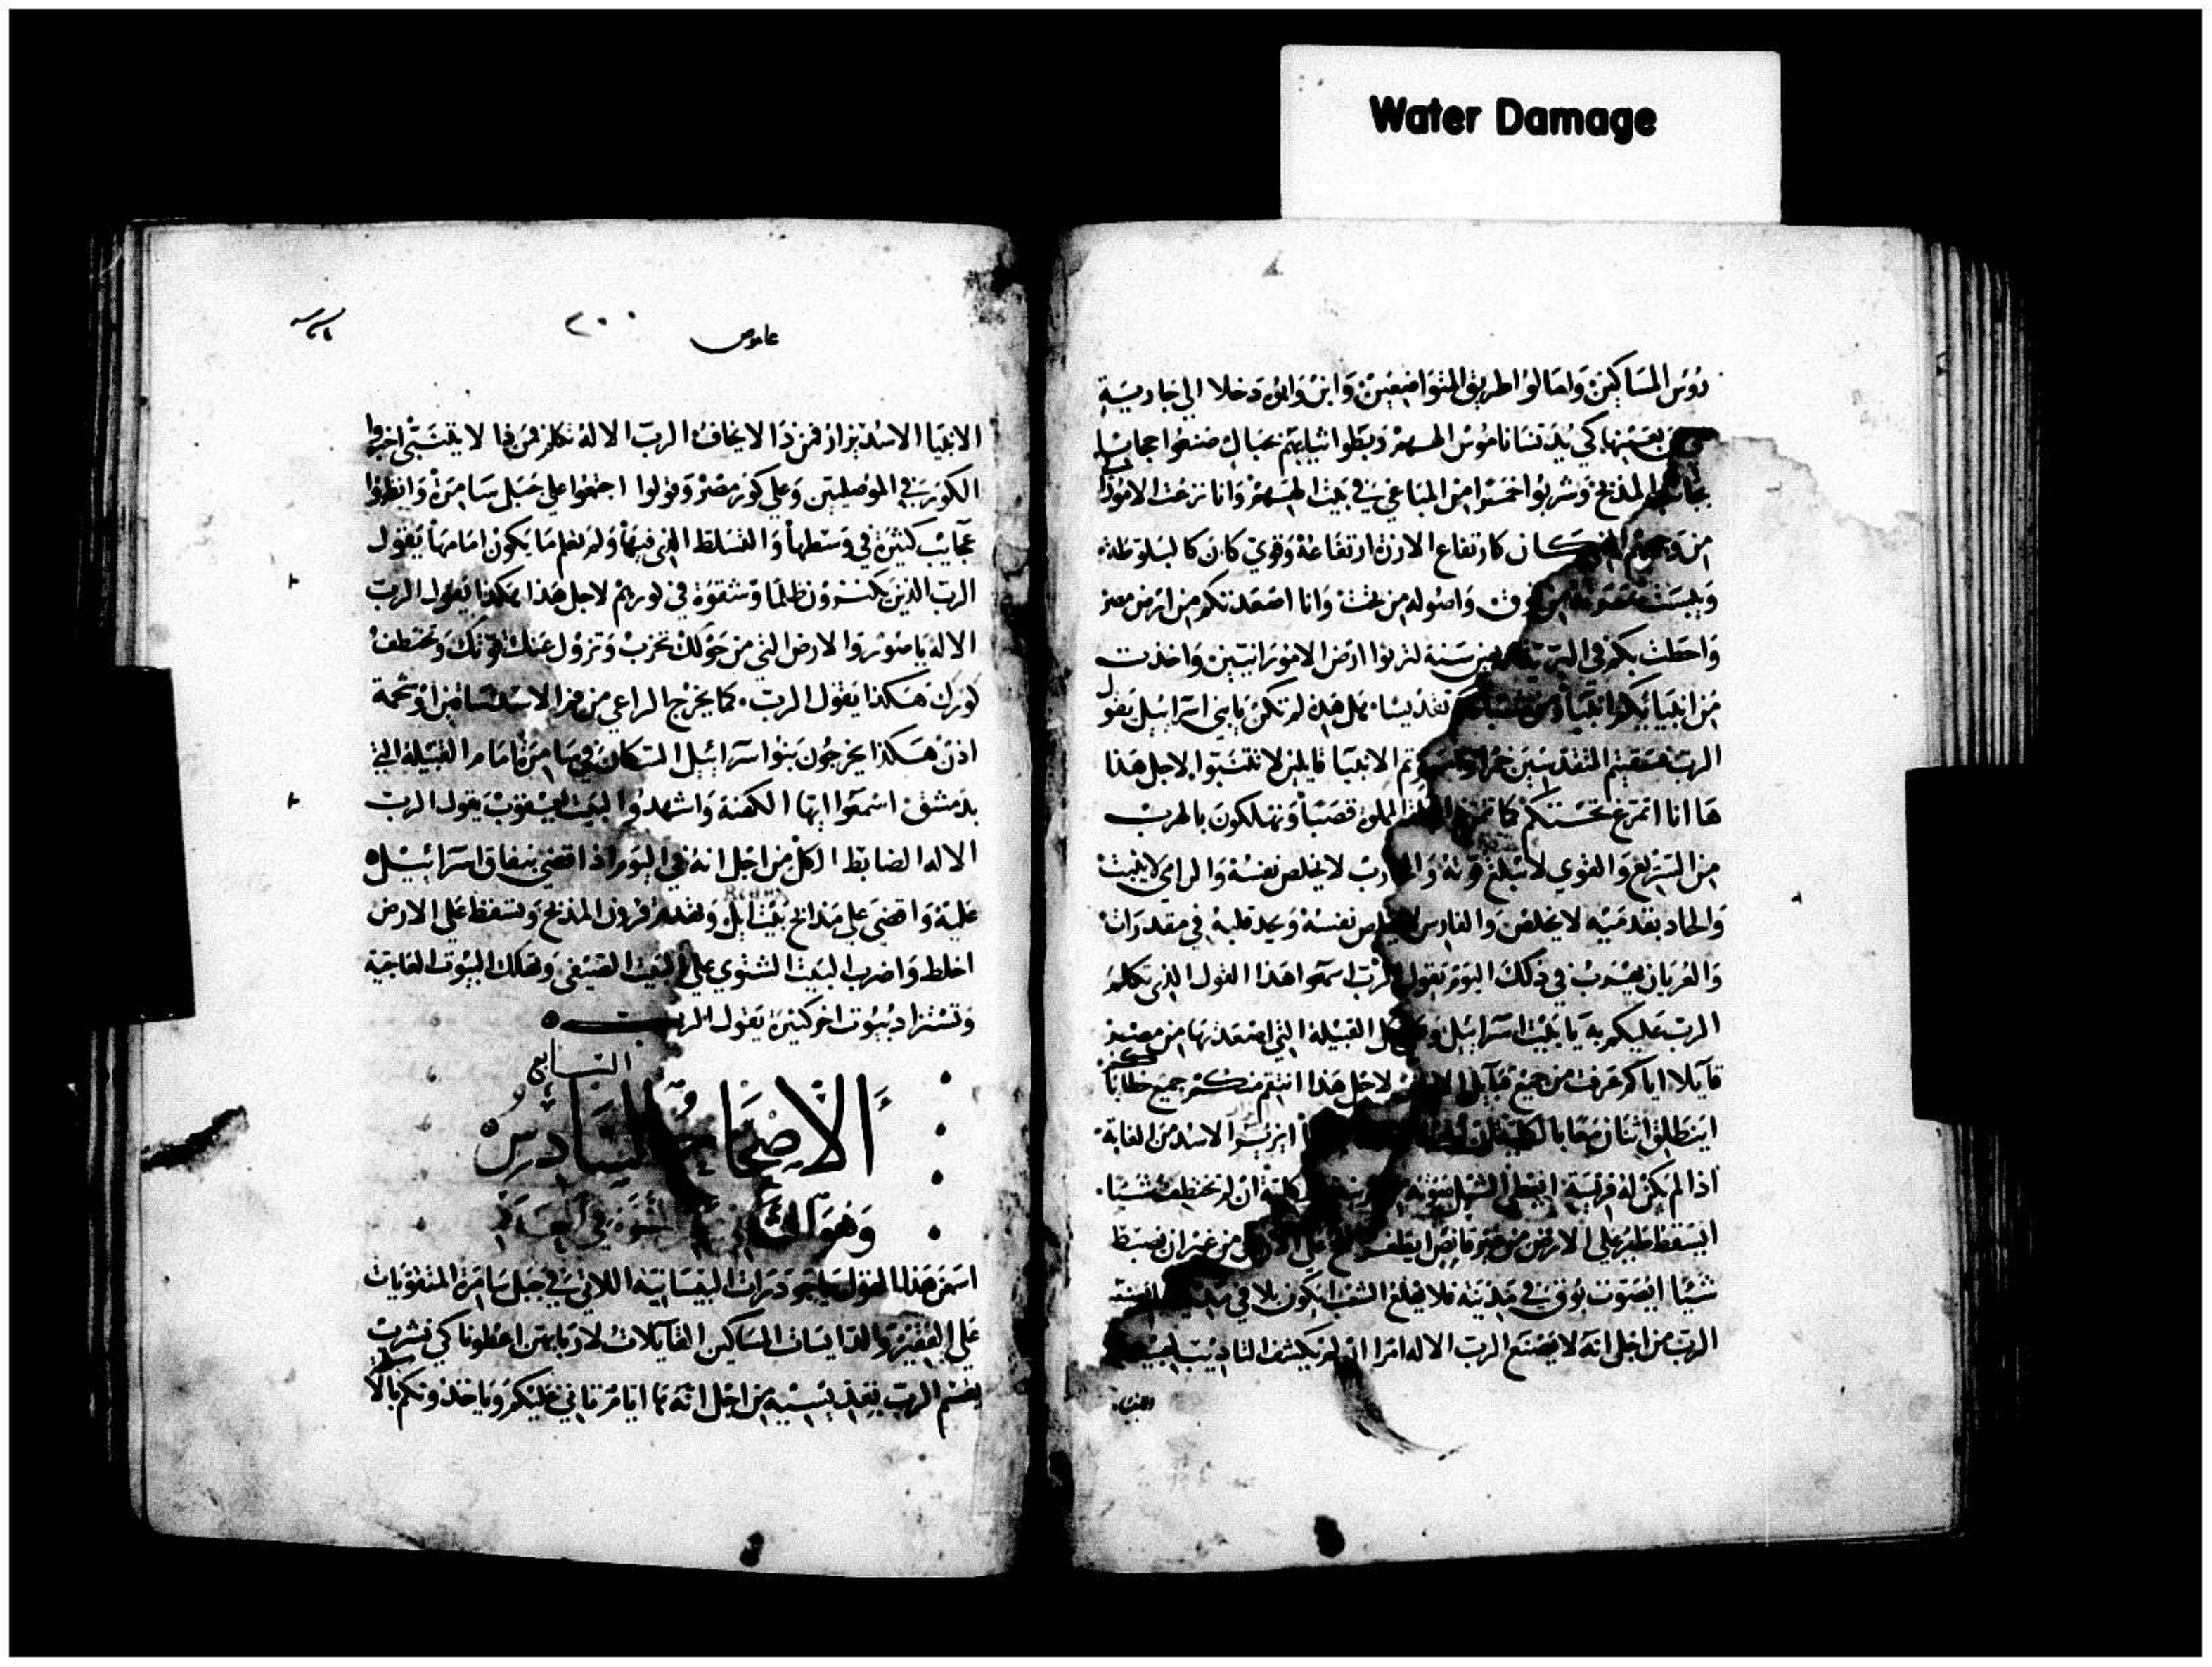 Water Damage
روس المساكين وامالوا طريق المتواضعين وابن وابوه دخلا الي جارية
بعينها كي يدنسا ناموس الههم وربطوا ثيابهم بحبال صنعوا حجابا
المذبح وشربوا خمرا من المباعي في بيت الههم وانا نزعت الاموراني
من كان كارتفاع الارزة ارتفاعه وقوي كان كالبلوطة
ويبست فوق واصوله من تحت وانا اصعدتكم من ارض مصر
واحطت بكم في سنة لترثوا ارض الامورانيين واخذت
من ابنيائكم انبيا تقديسا هل هذه لم تكن يا بني اسراييل يقول
الرب فسقيتم المتقدسين خمرا الانبيا قايلين لا تتنبوا لاجل هذا
ها انا اتمرغ تحتكم كما قصبا وتهلكون بالهرب
من السريع والقوي لا تبلغ قوته لا يخلص نفسه والرامي لا يثبت
والحاد بقدميه لا يخلص والفارس نفسه ويجد قلبه في مقدرات
والعريان يهرب في ذلك اليوم يقول الرب اسمعوا هذا القول الذي تكلم
الرب عليكم به يا بيت اسراييل القبيلة التي اصعدتها من مصر
قايلا اياكم عرفت من جميع قبايل لاجل هذا انتقم منكم جميع خطاياكم
اينطلق اثنان معا الاسد من الغابة
اذا لم يكن له فريسة ايعطي الشبل صوته ان لم يختطف شيا
ايسقط طير علي الارض من غير ان يضبط
شيئا ايصوت بوق في مدينة فلا يفزع الشعب ايكون بلا في
الرب من اجل انه لا يصنع الرب الاله امرا ان لم يكشف التاديب
الانبيا
عاموص
٢٠٠
الانبيا الاسد يزار فمن ذا لا يخاف الرب الاله تكلم فمن ذا لا يتنبي اخبروا
الكور في الموصليين وعلي كور مصر وقولوا اجتمعوا علي جبل سامرة وانظروا
عجايب كثيرة في وسطها والتسلط الذي فيها ولم تعلم ما يكون امامها يقول
الرب الذين يكنزون ظلما وشقوة في كورهم لاجل هذا هكذا يقول الرب
الاله يا صور والارض التي من حولك تخرب وتزول عنك قوتك وتختطف
كورك هكذا يقول الرب كما يخرج الراعي من فم الاسد ساقين او شحمة
اذن هكذا يخرجون بنوا سراييل السكان في سامرة امام القبيلة التي
بدمشق اسمعوا ايها الكهنة واشهدوا لبيت يعقوب يقول الرب
الاله الضابط الكل من اجل انه في اليوم اذا اقضي بنفاق اسراييل
عليه واقضي علي مذابح بيت ايل وتهدم قرون المذبح وتسقط علي الارض
اخلط واضرب البيت الشتوي علي البيت الصيفي وتهلك البيوت العاجية
وتستزاد بيوت اخر كثيرة يقول الرب
السابع
الاصحاح السادس
وهو في العدد
اسمعن هذا القول يا اللاتي في جبل سامرة المتقويات
علي الفقير والدايسات المساكين القايلات لاربابهن اعطونا كي نشرب
يقسم الرب بقديسيه من اجل انه ها ايام تاتي عليكم وياخذونكم بالا